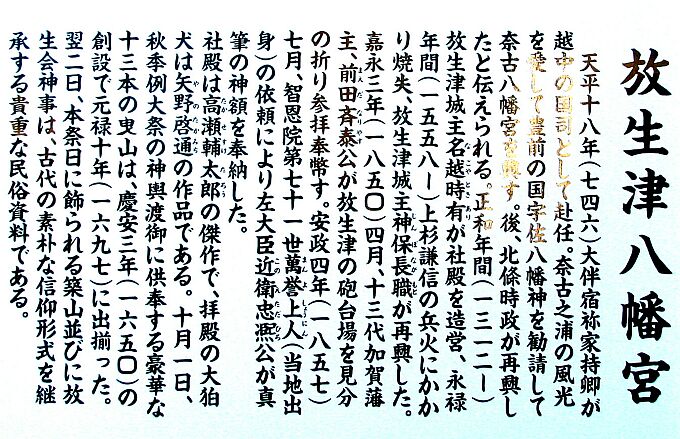 放生津八幡宮
天平十八年(七四六)大伴宿祢家持卿が
越中の国司として赴任。奈古之浦の風光
を愛して豊前の国宇佐八幡神を勧請して
奈古八幡宮を興す。後、北條時政が再興し
たと伝えられる。正和年間(一三一二ー)
放生津城主名越時有が社殿を造営、永禄
年間(一五五八ー)上杉謙信の兵火にかか
り焼失、放生津城主神保長職が再興した。
嘉永三年(一八五〇)四月、十三代加賀藩
主、前田斉泰公が放生津の砲台場を見分
の折り参拝奉幣す。安政四年(一八五七)
七月、智恩院第七十一世萬誉上人(当地出
身)の依頼により左大臣近衛忠凞公が真
筆の神額を奉納した。
社殿は高瀬輔太郎の傑作で、拝殿の大狛
犬は矢野啓通の作品である。十月一日、
秋季例大祭の神輿渡御に供奉する豪華な
十三本の曳山は、慶安三年(一六五〇)の
創設で元禄十年(一六九七)に出揃った。
翌二日、本祭日に飾られる築山並びに放
生会神事は、古代の素朴な信仰形式を継
承する貴重な民俗資料である。